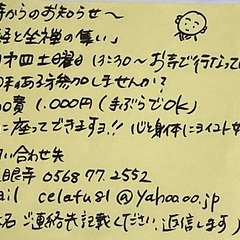 寺からのお知らせ〜
経と坐禅の集い」
第四土曜日 13:30〜お寺で行なって
味ある方参加しませんか?
加費 1.000円(手ぶらでOK)
に座ってできますヨ!! 心と身体に
い合わせ先
眼寺 0568 77.2552
ail celafus1@yahoo.co.jp
名 ご連絡先記載ください 返信します)